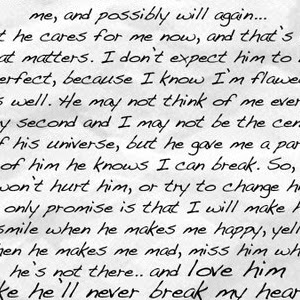 me, and possibly will again...
t he cares for me now, and that's
at matters. I don't expect him to
erfect, because I know I'm flawe
s well. He may not think of me ever
y second and I may not be the cen
of his universe, but he gave me a par
of him he knows I can break. So,
won't hurt him, or try to change h
only promise is that I will make h
smile when he makes me happy, yell
hen he makes me mad, miss him wh
he's not there.. and love him
ke he'll never break my hear